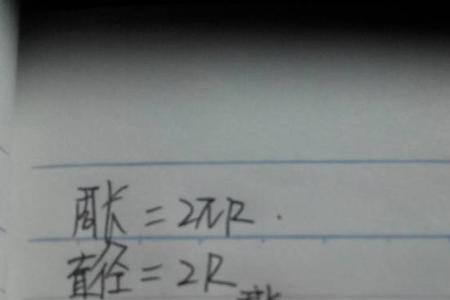 周长=2πR.
直径=2R